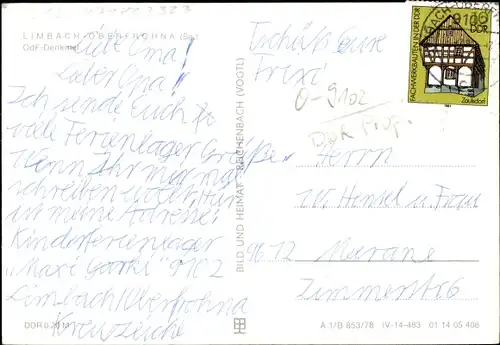 LIMBACH-OBERFROHNA (Sa.)
OdF-Denkmal
Liebe Oma!
Lieber Opa!
Ich sende Euch
viele Ferienlager Grüße
Wenn Ihr mir mal
schreiben wollt, hier
ist meine Adresse:
Kinderferienlager
„Maxi Gorki“ 9102
Limbach/Oberfrohna
Kreuzeiche
DDR 0,20 M
BILD UND HEIMAT REICHENBACH (VOGTL)
Tschüß Eure
0-9102
DDR
FACHWERKBAUTEN IN DER DDR
10
DDR
Zaulsdorf
1981
Herrn
W. Hensel u. Frau
9612 Meerane
Zimmerstr. 6
A 1/B 853/78 IV-14-483 01 14 05 408